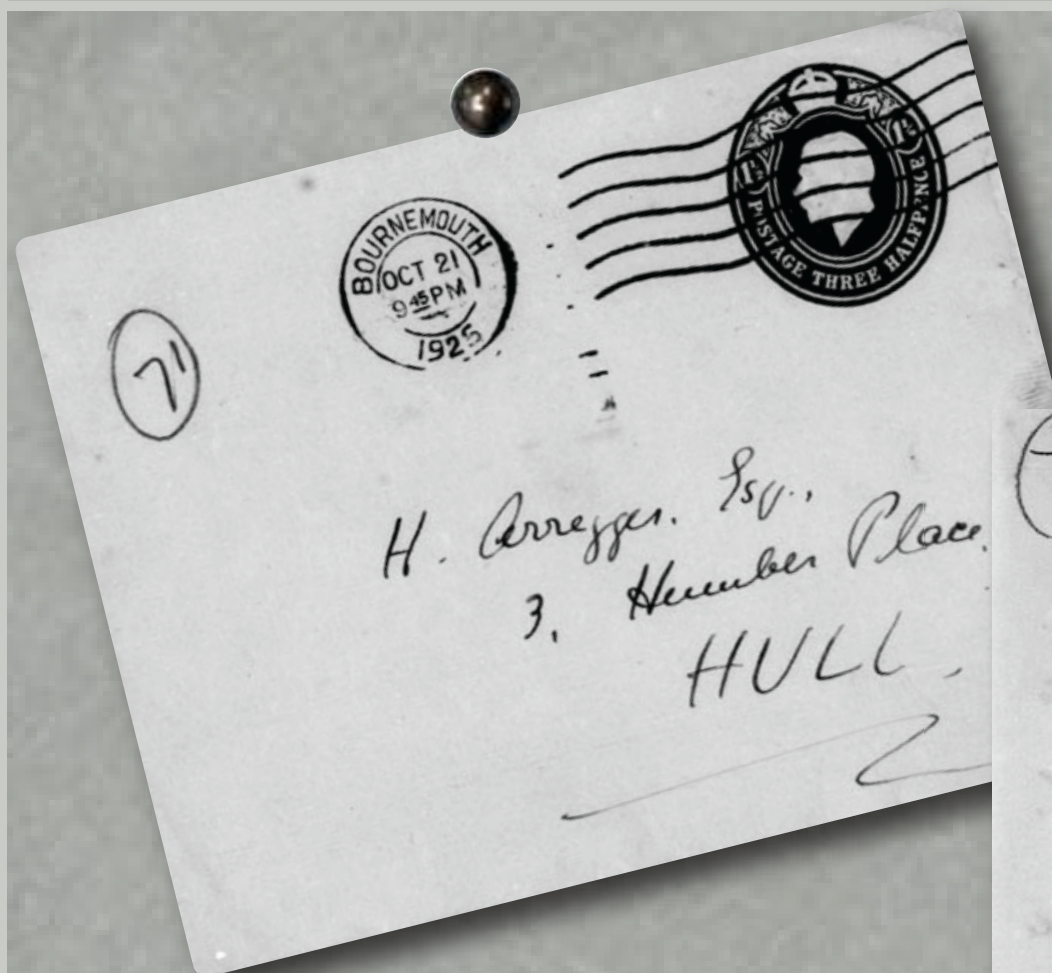 BOURNEMOUTH
OCT 21
9 45 PM
1925
POSTAGE THREE HALFPENCE
71
H. Arregger. Esq.,
3, Humber Place.
HULL.